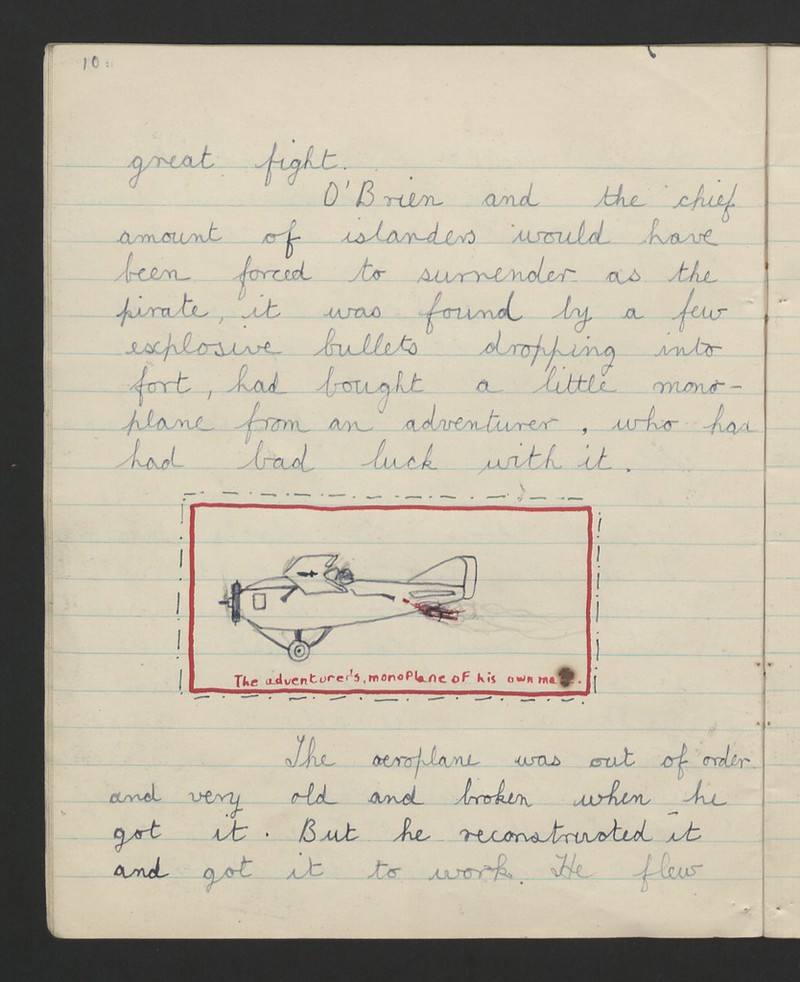 10.
great fight.
O'Brien and the chief
amount of islanders would have
been forced to surrender as the
pirate, it was found by a few
explosive bullets dropping into
fort, had bought a little mono-
plane from an adventurer, who had
had bad luck with it.
The adventurer's, monoplane of his own
The aeroplane was out of order
and very old and broken when he
got it. But he reconstructed it
and got it to work. He flew